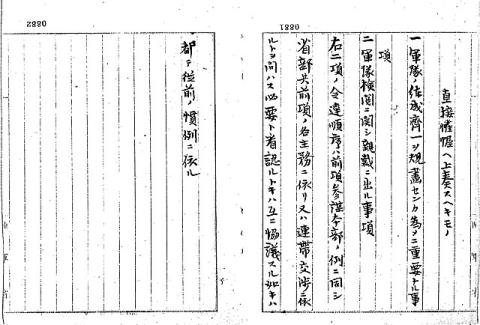 0881
直接帷幄ヘ上奏スヘキモノ
一 軍隊ノ結成齊一ヲ規畫センカ為メニ重要ナル事
項
二 軍隊検閲ニ関シ親裁ニ出ル事項
右二項ノ令達順序ハ前項参謀本部ノ例ニ同シ
省部共前項ノ各主務ニ依リ又ハ連帯交渉ニ係
ルトヲ問ハス必要ト看認ルトキハ互ニ協議スル如キハ
0882
都テ従前ノ慣例ニ依ル